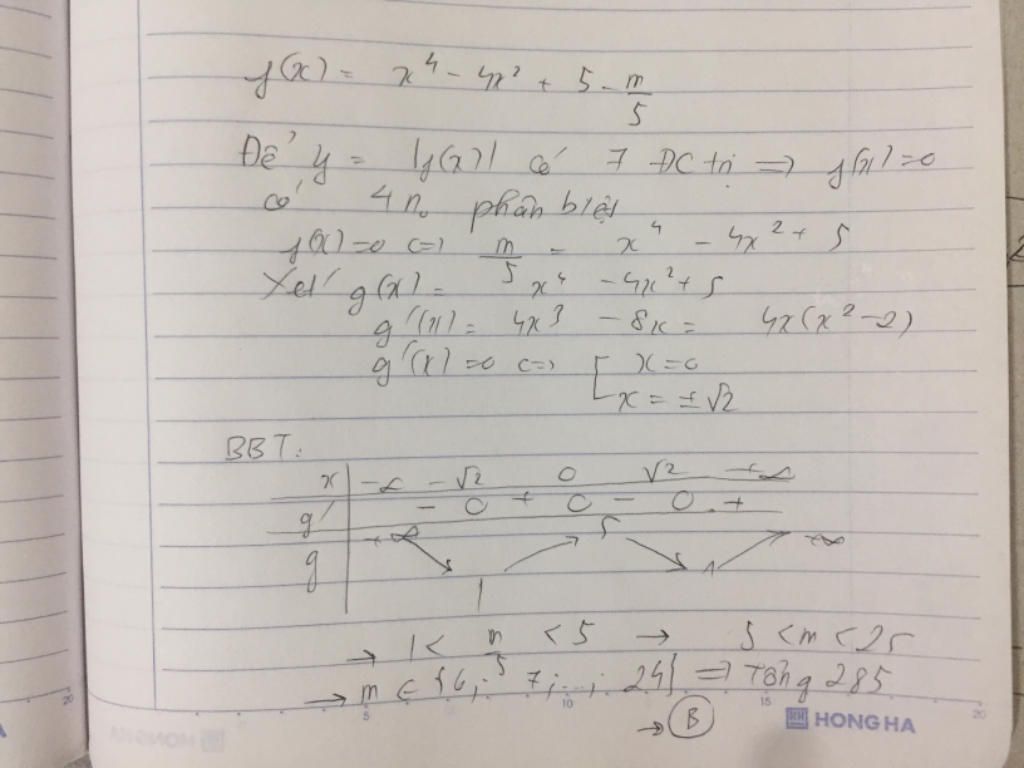 f(x) = x⁴ - 4x² + 5 - m/5
Để y = |f(x)| có 7 ĐC trị => f(x) = 0
có 4 n₀ phân biệt
f(x) = 0 <=> m/5 = x⁴ - 4x² + 5
Xét g(x) = x⁴ - 4x² + 5
g'(x) = 4x³ - 8x = 4x(x² - 2)
g'(x) = 0 <=> [ x = 0
x = ±√2
BBT:
x | -∞ -√2 0 √2 +∞
g' | - 0 + 0 - 0 +
g | +∞ 1 5 1 +∞
→ 1 < m/5 < 5 → 5 < m < 25
→ m ∈ {6; 7; ...; 24} => Tổng 285
→ B
5 10 15 20
HONG HA
20